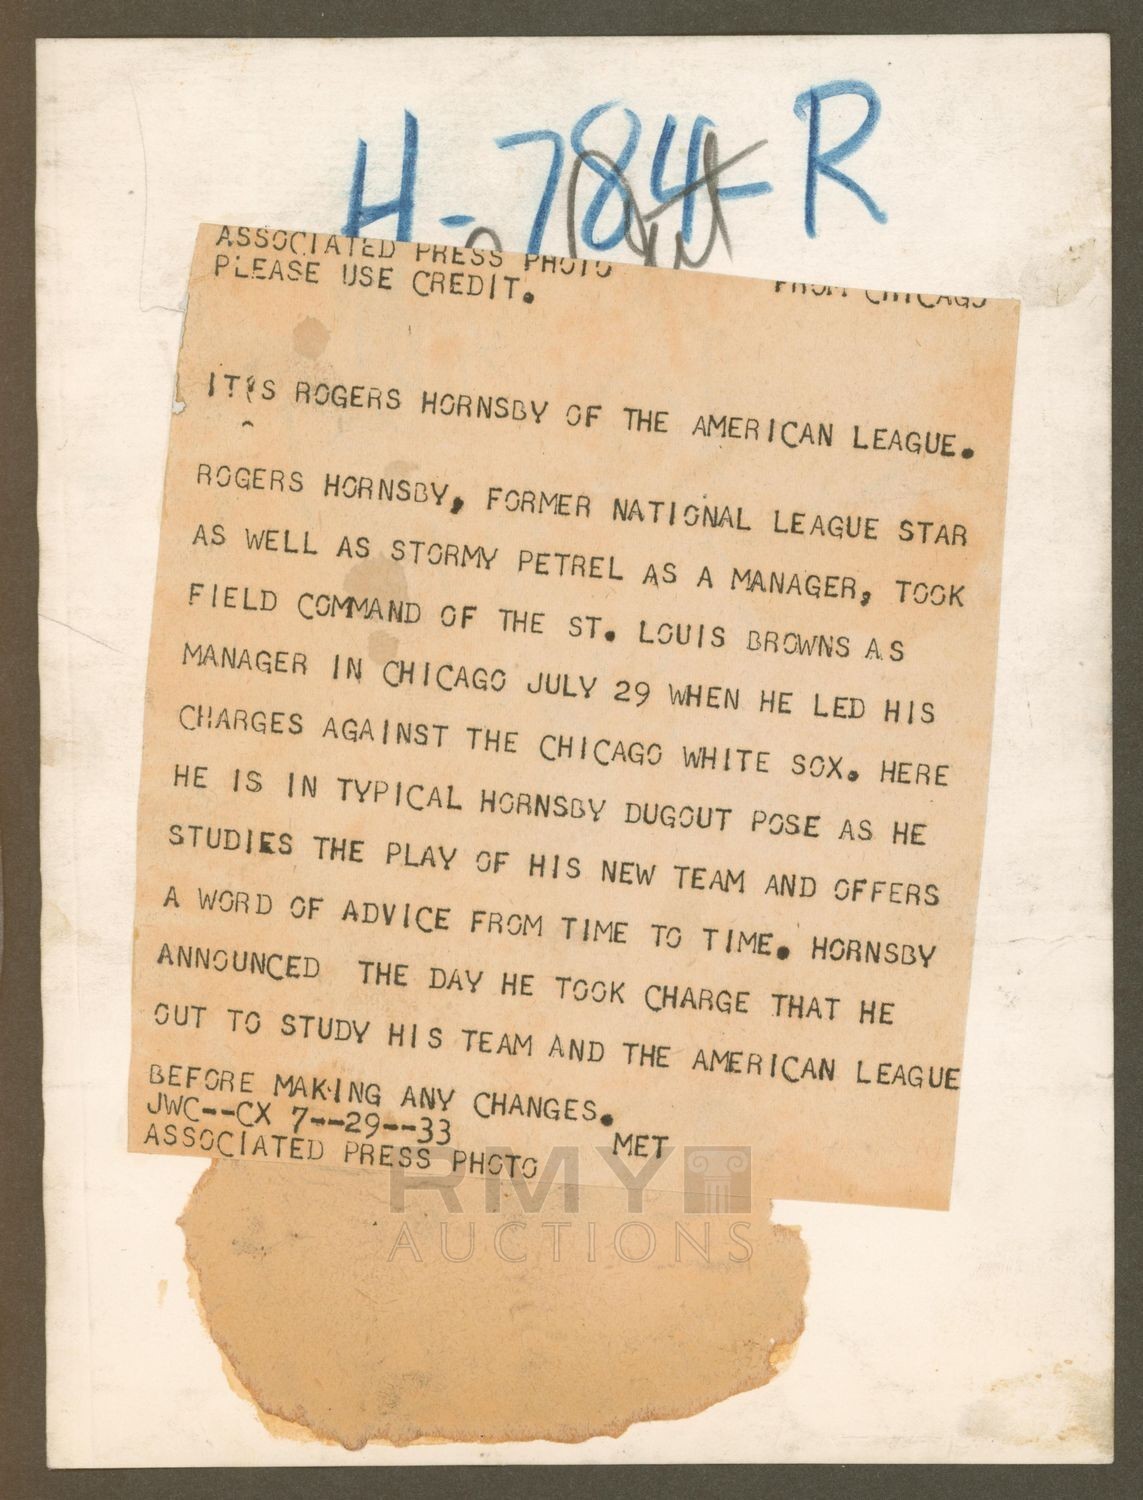 H-784-R
ASSOCIATED PRESS PHOTO
FROM CHICAGO
PLEASE USE CREDIT.
IT'S ROGERS HORNSBY OF THE AMERICAN LEAGUE.
ROGERS HORNSBY, FORMER NATIONAL LEAGUE STAR
AS WELL AS STORMY PETREL AS A MANAGER, TOOK
FIELD COMMAND OF THE ST. LOUIS BROWNS AS
MANAGER IN CHICAGO JULY 29 WHEN HE LED HIS
CHARGES AGAINST THE CHICAGO WHITE SOX. HERE
HE IS IN TYPICAL HORNSBY DUGOUT POSE AS HE
STUDIES THE PLAY OF HIS NEW TEAM AND OFFERS
A WORD OF ADVICE FROM TIME TO TIME. HORNSBY
ANNOUNCED THE DAY HE TOOK CHARGE THAT HE
OUT TO STUDY HIS TEAM AND THE AMERICAN LEAGUE
BEFORE MAKING ANY CHANGES.
JWC--CX 7--29--33
MET
ASSOCIATED PRESS PHOTO
RMY
AUCTIONS